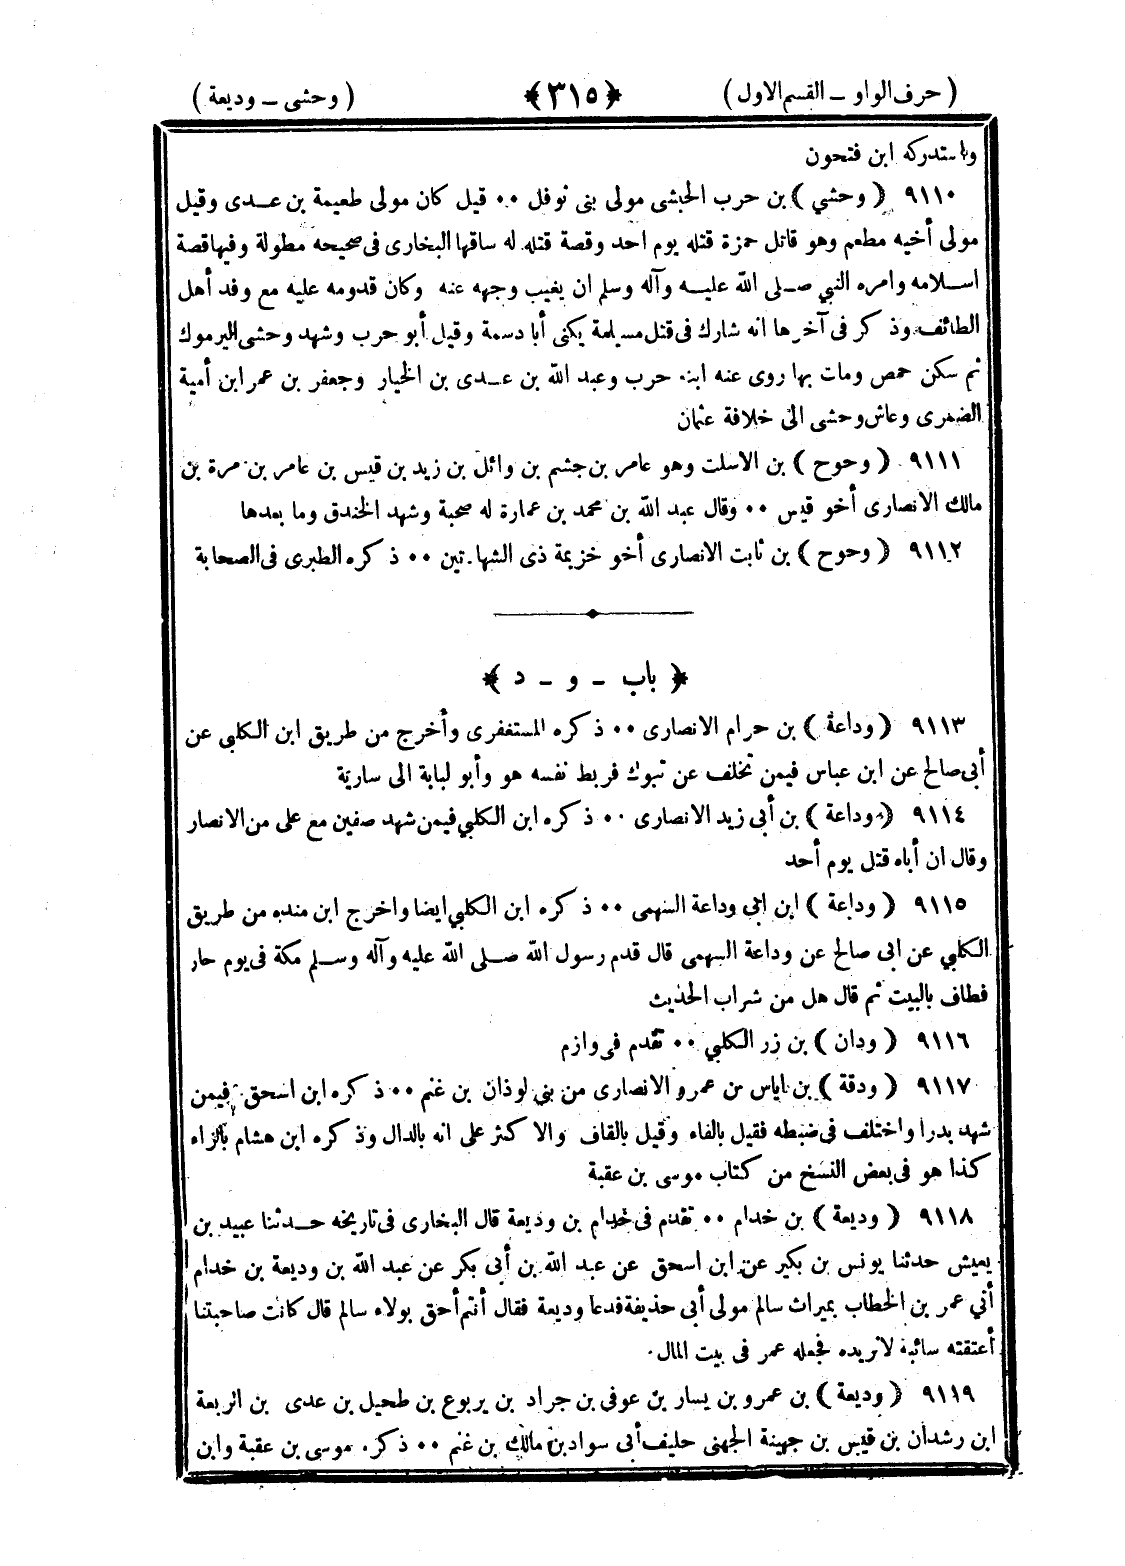 ( حرف الواو ــ القسم الاول ) ﴿ ٣١٥ ﴾ ( وحشى ــ وديعة )
واستدركه ابن فتحون
٩١١٠ ( وحشي ) بن حرب الحبشى مولى بنى نوفل ٠٠ قيل كان مولى طعيمة بن عــدى وقيل
مولى أخيه مطعم وهو قاتل حمزة قتله يوم احد وقصة قتله له ساقها البخارى فى صحيحه مطولة وفيها قصة
اســلامه وامره النبي صــلى الله عليــه وآله وسلم ان يغيب وجهه عنه وكان قدومه عليه مع وفد أهل
الطائف وذكر فى آخرها انه شارك فى قتل مسيلمة يكنى أبا دسمة وقيل أبو حرب وشهد وحشى اليرموك
ثم سكن حمص ومات بها روى عنه ابنه حرب وعبد الله بن عــدى بن الخيار وجعفر بن عمر ابن أمية
الضمرى وعاش وحشى الى خلافة عثمان
٩١١١ ( وحوح ) بن الاسلت وهو عامر بن جشم بن وائل بن زيد بن قيس بن عامر بن مرة بن
مالك الانصارى أخو قيس ٠٠ وقال عبد الله بن محمد بن عمارة له صحبة وشهد الخندق وما بعدها
٩١١٢ ( وحوح ) بن ثابت الانصارى أخو خزيمة ذى الشهادتين ٠٠ ذكره الطبرى فى الصحابة
﴿ باب ــ و ــ د ﴾
٩١١٣ ( وداعة ) بن حرام الانصارى ٠٠ ذكره المستغفرى وأخرج من طريق ابن الكلبي عن
أبى صالح عن ابن عباس فيمن تخلف عن تبوك فربط نفسه هو وأبو لبابة الى سارية
٩١١٤ ( وداعة ) بن أبى زيد الانصارى ٠٠ ذكره ابن الكلبي فيمن شهد صفين مع على من الانصار
وقال ان أباه قتل يوم أحد
٩١١٥ ( وداعة ) ابن ابى وداعة السهمى ٠٠ ذكره ابن الكلبي ايضا واخرج ابن منده من طريق
الكلبي عن ابى صالح عن وداعة السهمى قال قدم رسول الله صــلى الله عليه وآله وســلم مكة فى يوم حار
فطاف بالبيت ثم قال هل من شراب الحديث
٩١١٦ ( ودان ) بن زر الكلبي ٠٠ تقدم فى وازم
٩١١٧ ( ودقة ) بن اياس بن عمرو الانصارى من بني لوذان بن غنم ٠٠ ذكره ابن اسحق فيمن
شهد بدرا واختلف فى ضبطه فقيل بالفاء وقيل بالقاف والاكثر على انه بالدال وذكره ابن هشام بالزاء
كذا هو فى بعض النسخ من كتاب موسى بن عقبة
٩١١٨ ( وديعة ) بن خدام ٠٠ تقدم فى خدام بن وديعة قال البخارى فى تاريخه حــدثنا عبيد بن
يعيش حدثنا يونس بن بكير عن ابن اسحق عن عبد الله بن أبى بكر عن عبد الله بن وديعة بن خدام
أتى عمر بن الخطاب بميراث سالم مولى أبى حذيفة فدعا وديعة فقال أنتم أحق بولاء سالم قال كانت صاحبتنا
أعتقته سائبة لا نريده فجعله عمر فى بيت المال
٩١١٩ ( وديعة ) بن عمرو بن يسار بن عوفى بن جراد بن يربوع بن طحيل بن عدى بن الربعة
ابن رشدان بن قيس بن جهينة الجهنى حليف أبى سواد بن مالك بن غنم ٠٠ ذكره موسى بن عقبة وابن